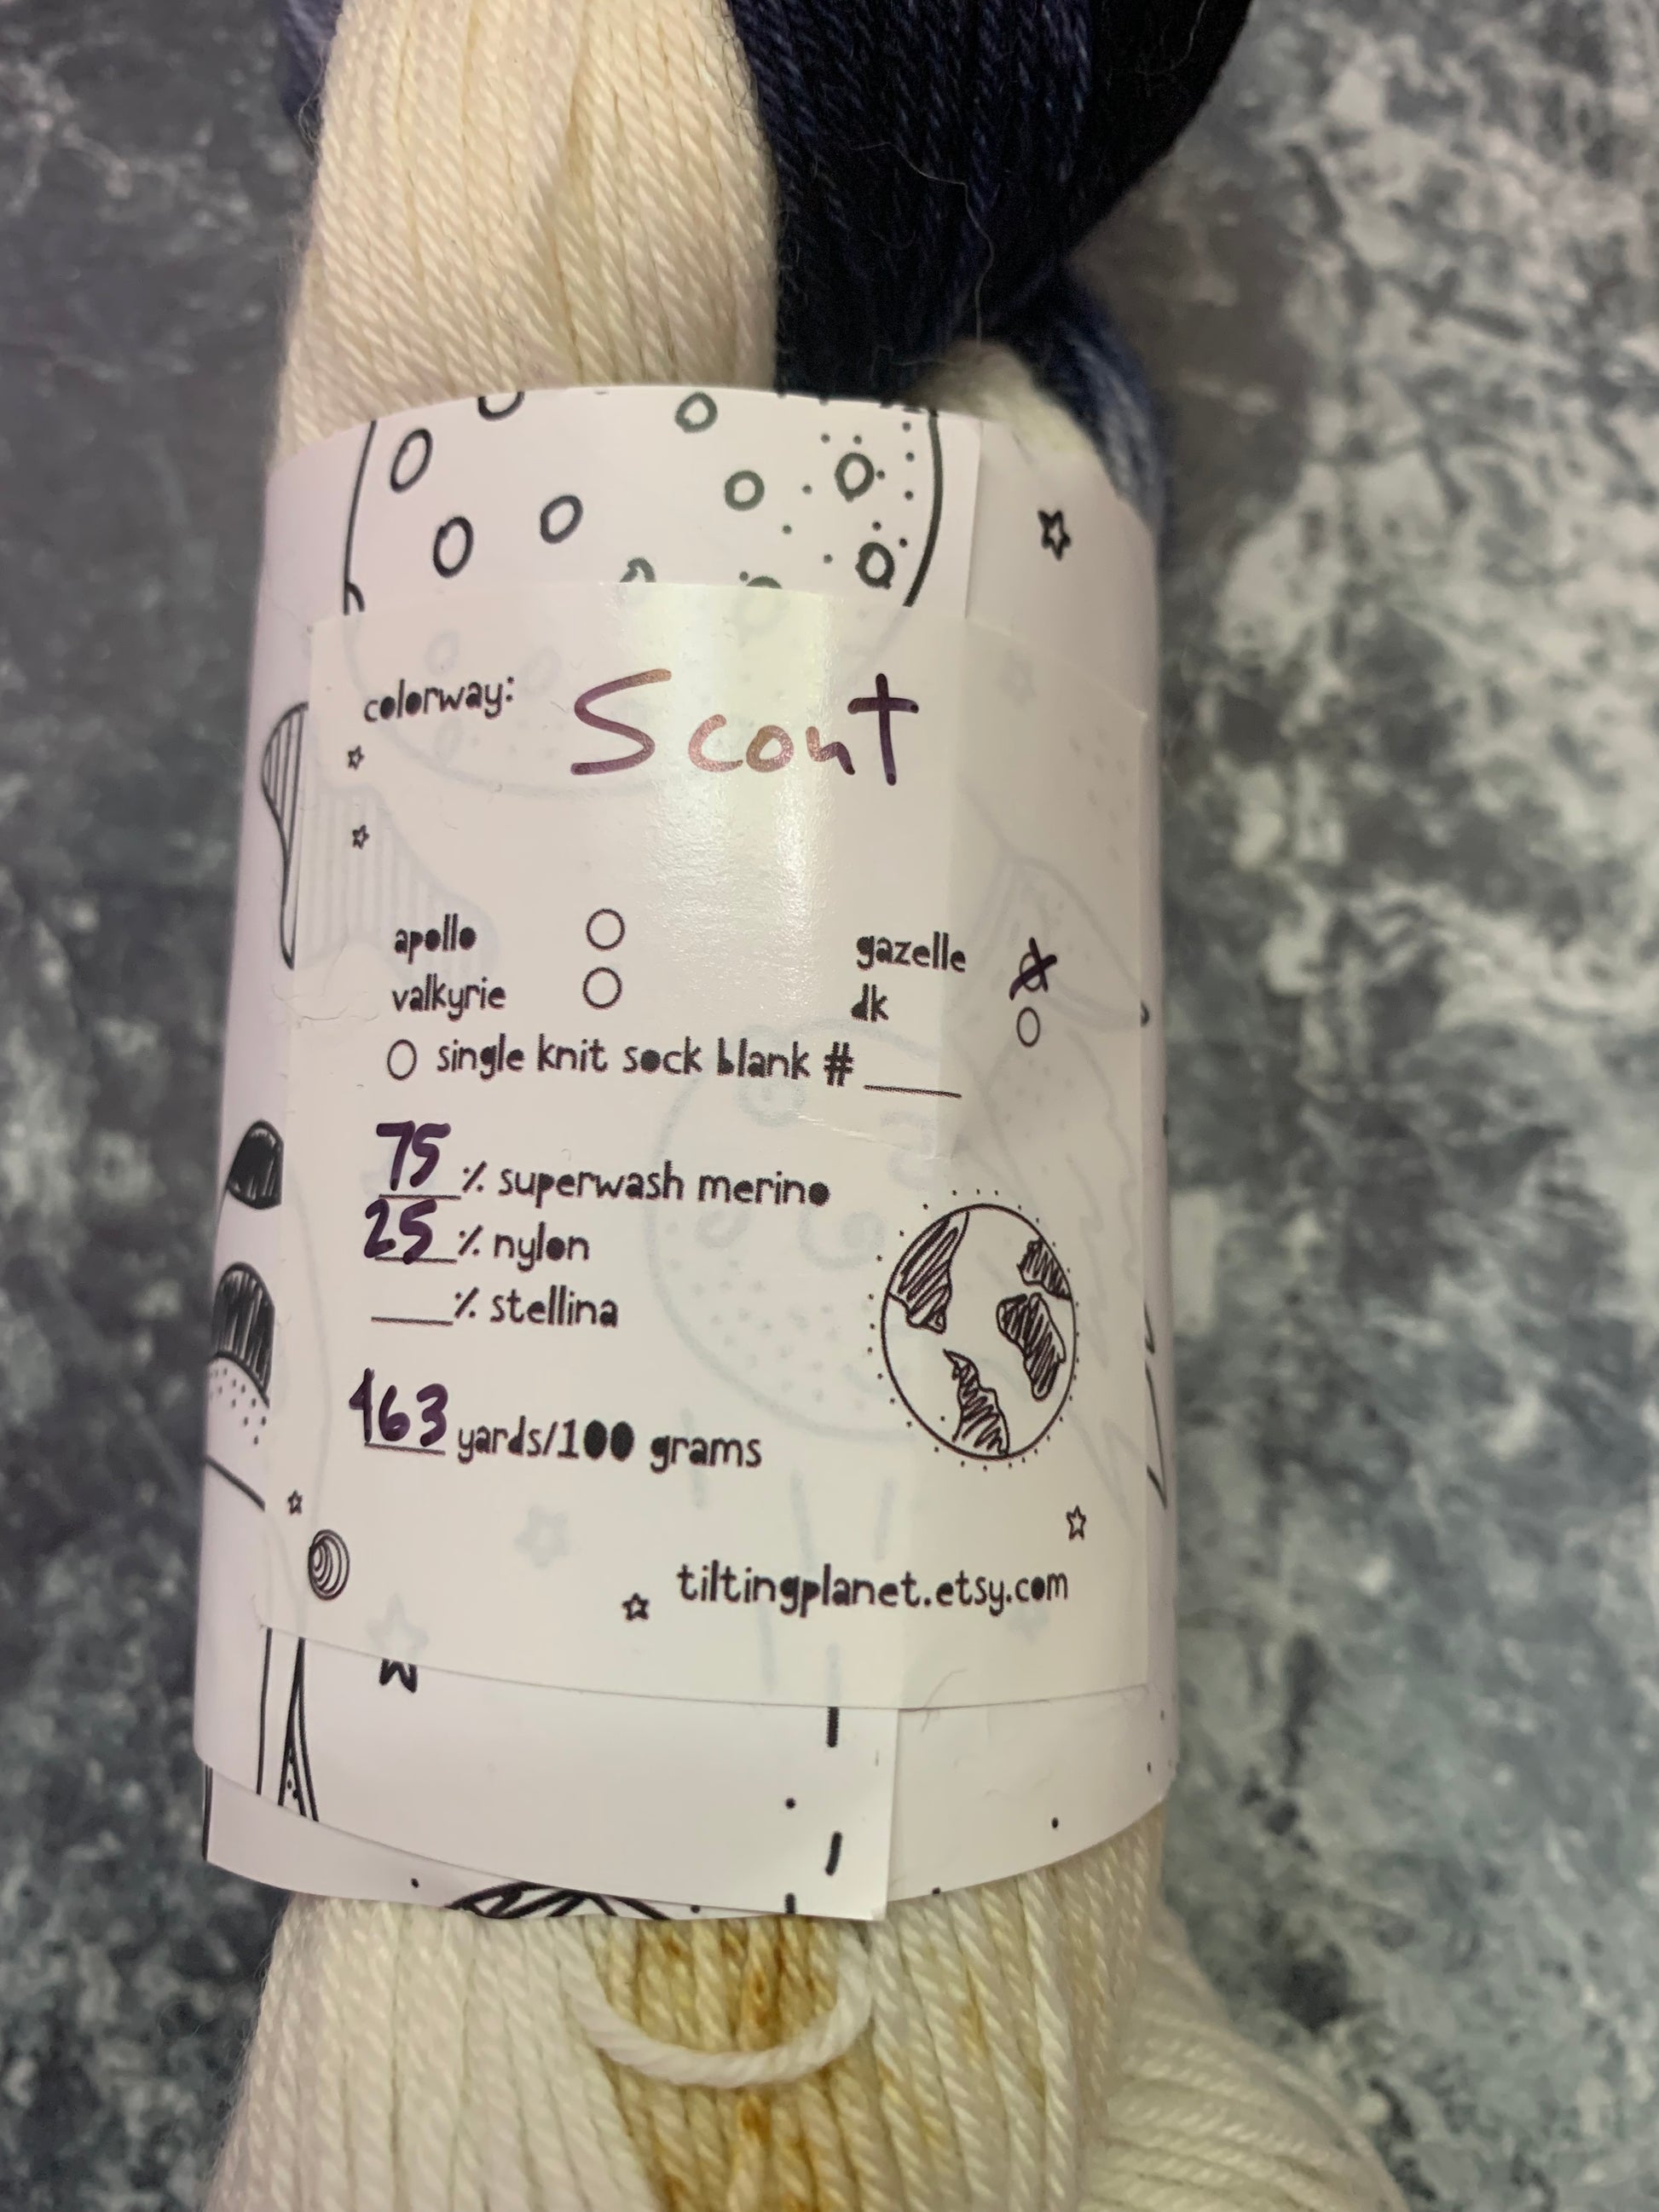 colorway: Scout
apollo
valkyrie
gazelle
dk
single knit sock blank # ____
75 % superwash merino
25 % nylon
____% stellina
463 yards/100 grams
tiltingplanet.etsy.com